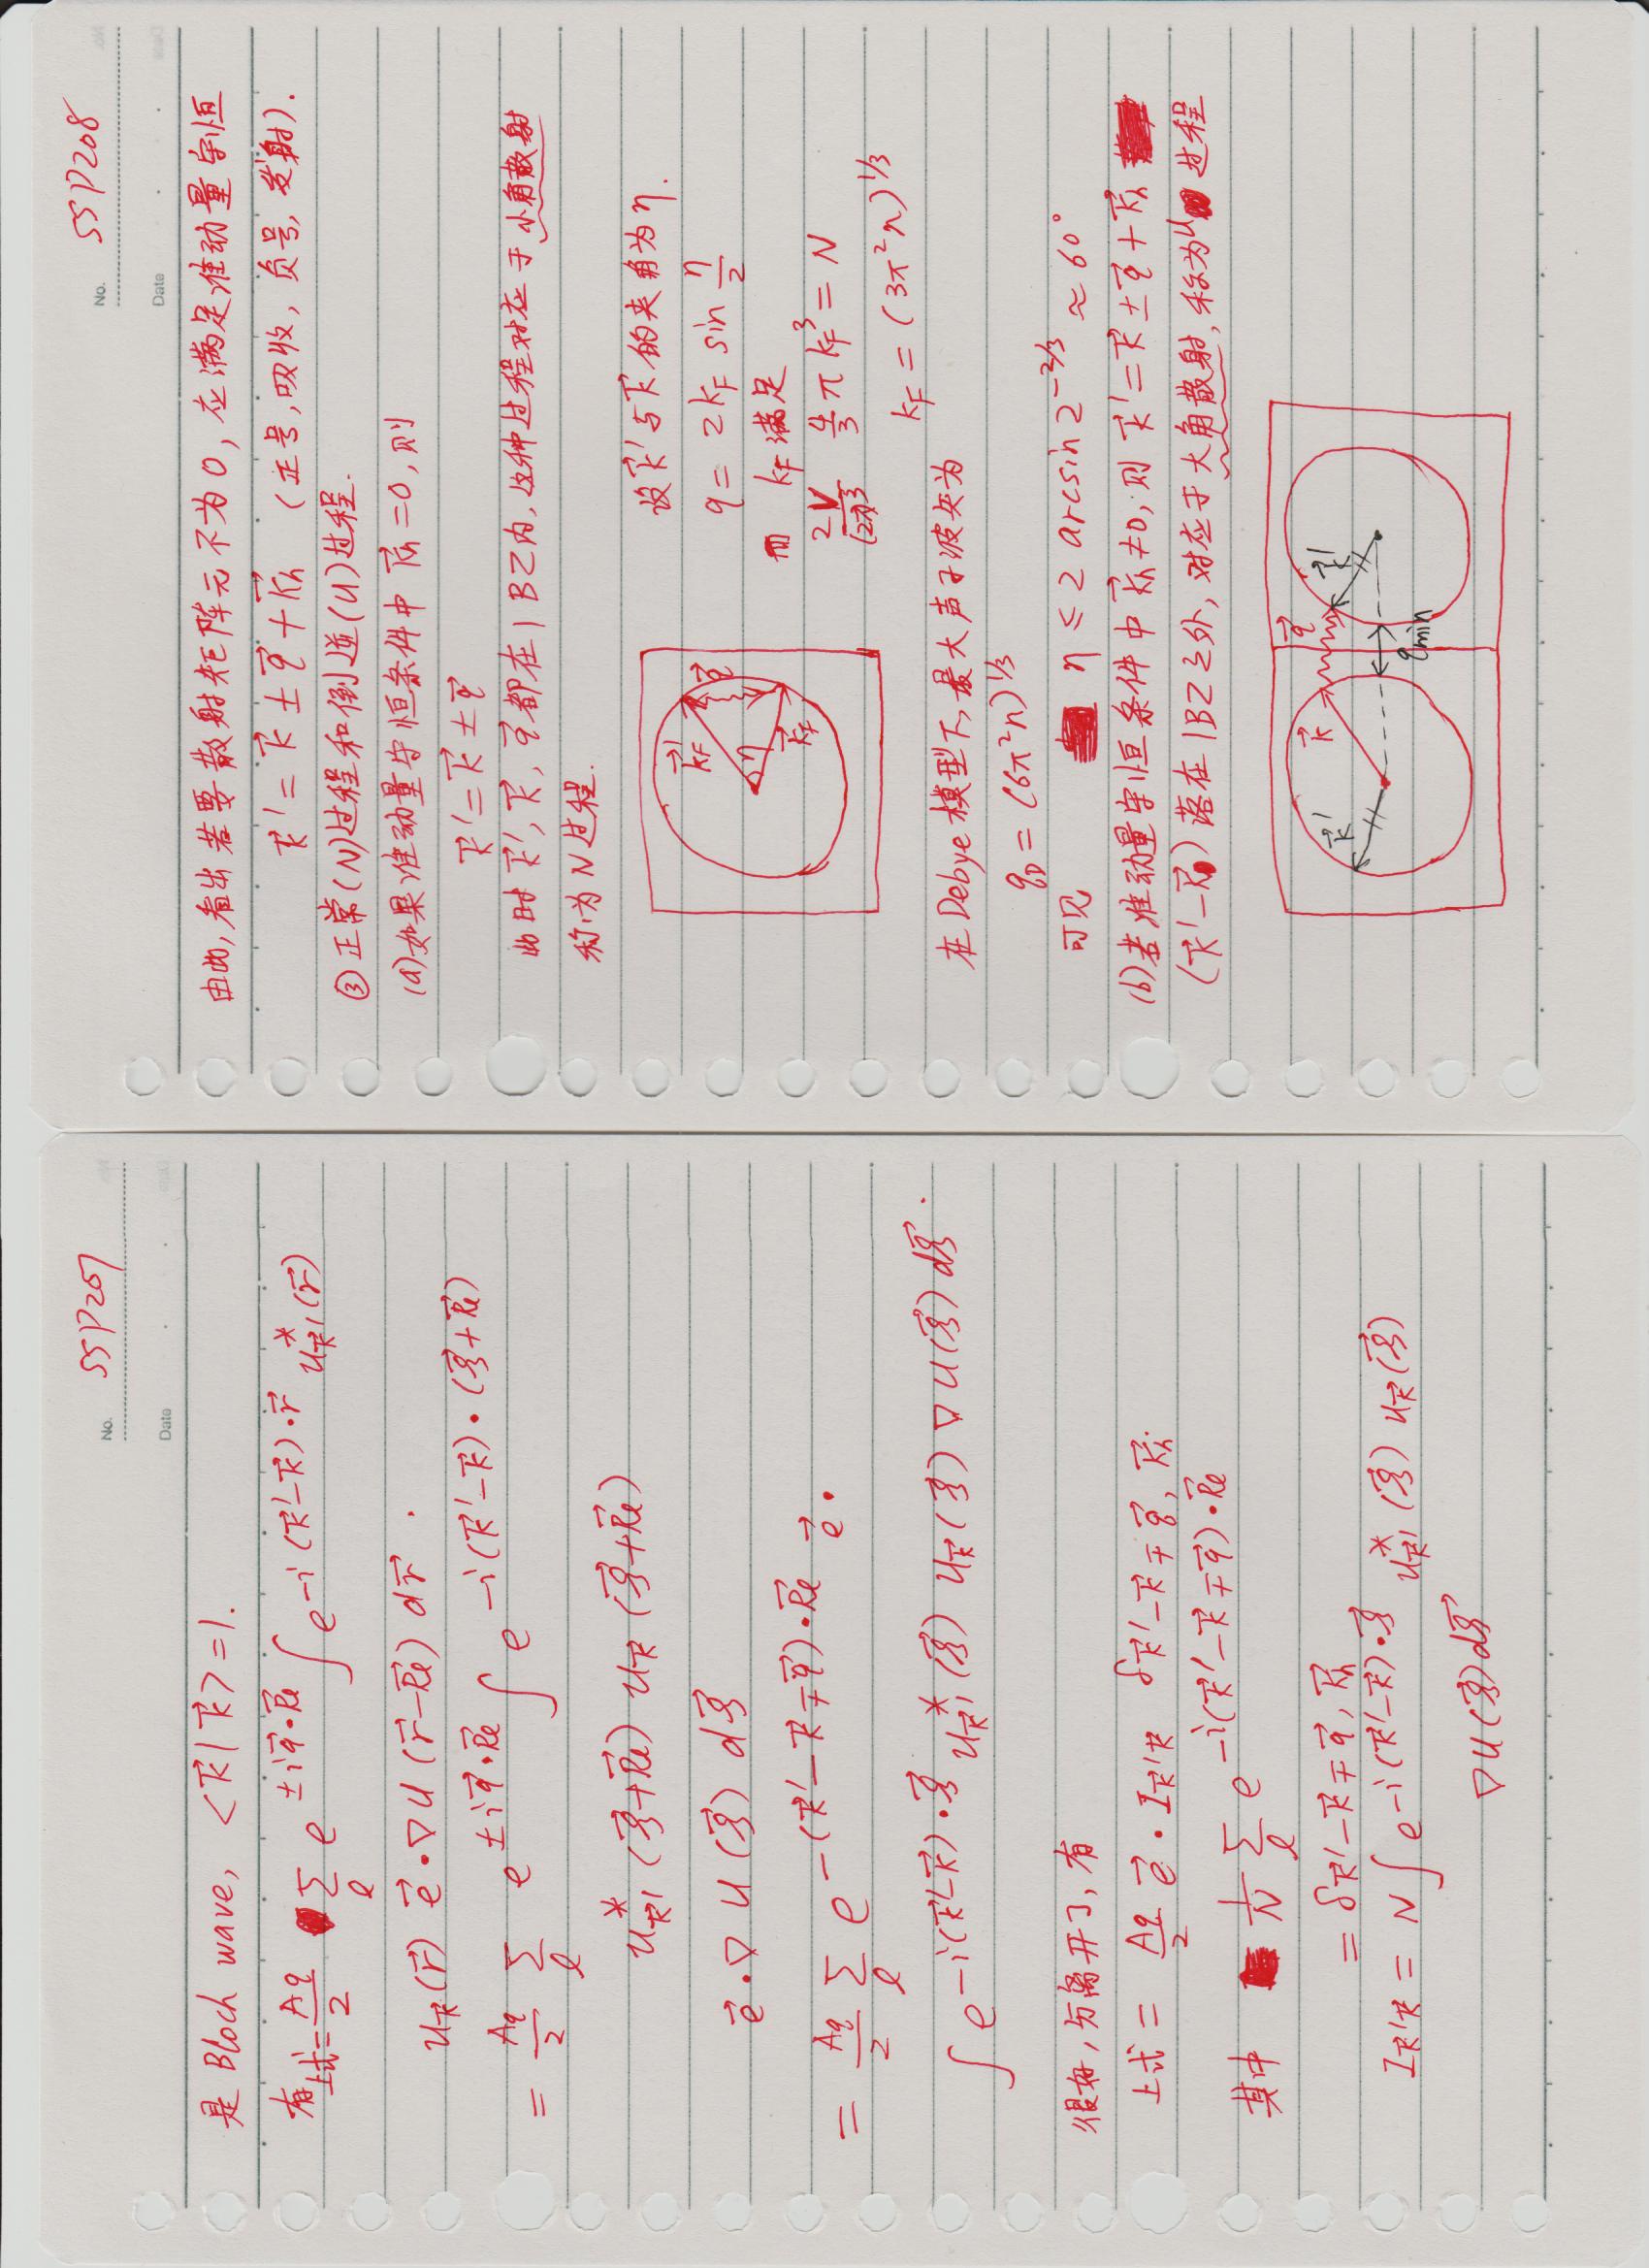 No. SSP207
Date
是 Bloch wave, <k⃗|k⃗>=1.
有上式= A_q/2 Σ_l e^{±iq⃗·R⃗_l} ∫ e^{-i(k⃗'-k⃗)·r⃗} u*_{k⃗'}(r⃗)
u_{k⃗}(r⃗) e⃗·∇U(r⃗-R⃗_l) dr⃗.
= A_q/2 Σ_l e^{±iq⃗·R⃗_l} ∫ e^{-i(k⃗'-k⃗)·(ξ⃗+R⃗_l)}
u*_{k⃗'}(ξ⃗+R⃗_l) u_{k⃗}(ξ⃗+R⃗_l)
e⃗·∇U(ξ⃗) dξ⃗
= A_q/2 Σ_l e^{-(k⃗'-k⃗∓q⃗)·R⃗_l} e⃗·
∫ e^{-i(k⃗'-k⃗)·ξ⃗} u*_{k⃗'}(ξ⃗) u_{k⃗}(ξ⃗) ∇U(ξ⃗) dξ⃗.
很好,分离开了,有
上式= A_q/2 e⃗·I_{k⃗'k⃗} δ_{k⃗'-k⃗∓q⃗, K⃗_h}
其中 1/N Σ_l e^{-i(k⃗'-k⃗∓q⃗)·R⃗_l}
= δ_{k⃗'-k⃗∓q⃗, K⃗_h}
I_{k⃗'k⃗} = N∫ e^{-i(k⃗'-k⃗)·ξ⃗} u*_{k⃗'}(ξ⃗) u_{k⃗}(ξ⃗)
∇U(ξ⃗)dξ⃗
No. SSP208
Date
由此,看出若要散射矩阵元不为0,应满足准动量守恒
k⃗'=k⃗±q⃗+K⃗_h (正号,吸收,负号,发射).
③正常(N)过程和倒逆(U)过程.
(a)如果准动量守恒条件中 K⃗_h=0,则
k⃗'=k⃗±q⃗
此时 k⃗', k⃗, q⃗都在1BZ内,这种过程对应于小角散射
称为N过程.
k⃗_F' q⃗
η
k⃗_F
设k⃗'与k⃗的夹角为η.
q = 2k_F sin η/2
而 k_F满足
2V/(2π)^3 4/3 πk_F^3 = N
k_F = (3π²n)^{1/3}
在Debye模型下,最大声子波矢为
q_D = (6π²n)^{1/3}
可见 η ≤ 2 arcsin 2^{-2/3} ≈ 60°
(b)若准动量守恒条件中K⃗_h≠0,则 k⃗'=k⃗±q⃗+K⃗_h
(k⃗'-K⃗) 落在1BZ之外,对应于大角散射,称为U过程
k⃗' k⃗ q⃗ k⃗'
q_min